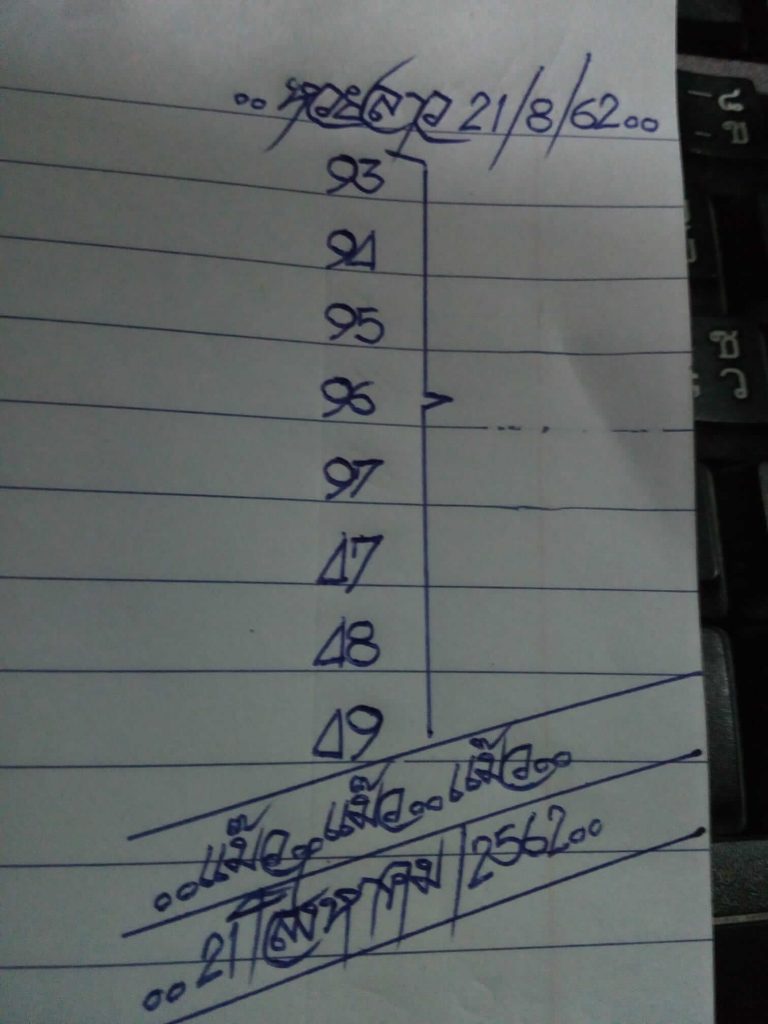 ..หวยลาว 21/8/62..
93
94
95
96
97
47
48
49
..แม๊ว..แม๊ว..แม๊ว..
..21/สิงหาคม/2562..